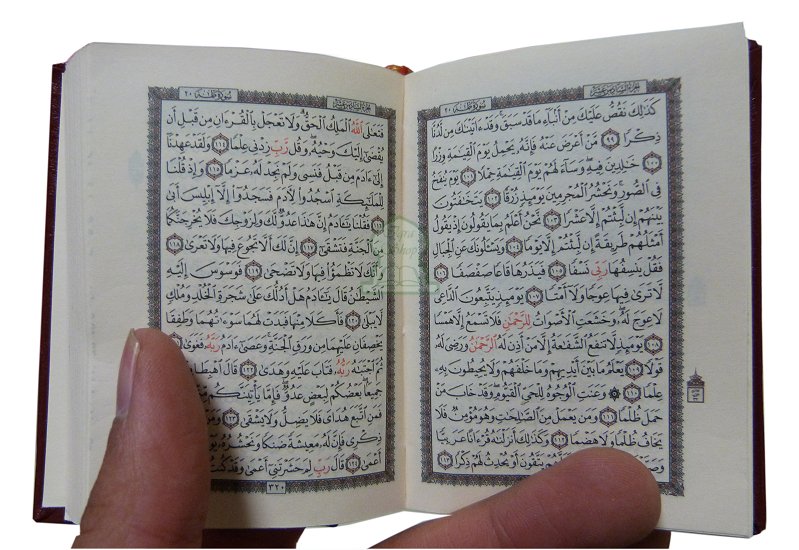 سُورَةُ طه ٢٠
الجزء السادس عشر
كَذَٰلِكَ نَقُصُّ عَلَيْكَ مِنْ أَنۢبَآءِ مَا قَدْ سَبَقَ ۚ وَقَدْ ءَاتَيْنَٰكَ مِن لَّدُنَّا
ذِكْرًا ٩٩ مَّنْ أَعْرَضَ عَنْهُ فَإِنَّهُۥ يَحْمِلُ يَوْمَ ٱلْقِيَٰمَةِ وِزْرًا
١٠٠ خَٰلِدِينَ فِيهِ ۖ وَسَآءَ لَهُمْ يَوْمَ ٱلْقِيَٰمَةِ حِمْلًا ١٠١ يَوْمَ يُنفَخُ
فِى ٱلصُّورِ ۚ وَنَحْشُرُ ٱلْمُجْرِمِينَ يَوْمَئِذٍ زُرْقًا ١٠٢ يَتَخَٰفَتُونَ
بَيْنَهُمْ إِن لَّبِثْتُمْ إِلَّا عَشْرًا ١٠٣ نَّحْنُ أَعْلَمُ بِمَا يَقُولُونَ إِذْ يَقُولُ
أَمْثَلُهُمْ طَرِيقَةً إِن لَّبِثْتُمْ إِلَّا يَوْمًا ١٠٤ وَيَسْـَٔلُونَكَ عَنِ ٱلْجِبَالِ
فَقُلْ يَنسِفُهَا رَبِّى نَسْفًا ١٠٥ فَيَذَرُهَا قَاعًا صَفْصَفًا ١٠٦
لَّا تَرَىٰ فِيهَا عِوَجًا وَلَآ أَمْتًا ١٠٧ يَوْمَئِذٍ يَتَّبِعُونَ ٱلدَّاعِىَ
لَا عِوَجَ لَهُۥ ۖ وَخَشَعَتِ ٱلْأَصْوَاتُ لِلرَّحْمَٰنِ فَلَا تَسْمَعُ إِلَّا هَمْسًا
١٠٨ يَوْمَئِذٍ لَّا تَنفَعُ ٱلشَّفَٰعَةُ إِلَّا مَنْ أَذِنَ لَهُ ٱلرَّحْمَٰنُ وَرَضِىَ لَهُۥ
قَوْلًا ١٠٩ يَعْلَمُ مَا بَيْنَ أَيْدِيهِمْ وَمَا خَلْفَهُمْ وَلَا يُحِيطُونَ بِهِۦ
عِلْمًا ١١٠ ۞ وَعَنَتِ ٱلْوُجُوهُ لِلْحَىِّ ٱلْقَيُّومِ ۖ وَقَدْ خَابَ مَنْ
حَمَلَ ظُلْمًا ١١١ وَمَن يَعْمَلْ مِنَ ٱلصَّٰلِحَٰتِ وَهُوَ مُؤْمِنٌ فَلَا
يَخَافُ ظُلْمًا وَلَا هَضْمًا ١١٢ وَكَذَٰلِكَ أَنزَلْنَٰهُ قُرْءَانًا عَرَبِيًّا
يَتَّقُونَ أَوْ يُحْدِثُ لَهُمْ ذِكْرًا ١١٣
سُورَةُ طه ٢٠
الجزء السادس عشر
فَتَعَٰلَى ٱللَّهُ ٱلْمَلِكُ ٱلْحَقُّ ۗ وَلَا تَعْجَلْ بِٱلْقُرْءَانِ مِن قَبْلِ أَن
يُقْضَىٰٓ إِلَيْكَ وَحْيُهُۥ ۖ وَقُل رَّبِّ زِدْنِى عِلْمًا ١١٤ وَلَقَدْ عَهِدْنَآ
إِلَىٰٓ ءَادَمَ مِن قَبْلُ فَنَسِىَ وَلَمْ نَجِدْ لَهُۥ عَزْمًا ١١٥ وَإِذْ قُلْنَا
لِلْمَلَٰٓئِكَةِ ٱسْجُدُوا۟ لِءَادَمَ فَسَجَدُوٓا۟ إِلَّآ إِبْلِيسَ أَبَىٰ
١١٦ فَقُلْنَا يَٰٓـَٔادَمُ إِنَّ هَٰذَا عَدُوٌّ لَّكَ وَلِزَوْجِكَ فَلَا يُخْرِجَنَّكُمَا
مِنَ ٱلْجَنَّةِ فَتَشْقَىٰٓ ١١٧ إِنَّ لَكَ أَلَّا تَجُوعَ فِيهَا وَلَا تَعْرَىٰ ١١٨
وَأَنَّكَ لَا تَظْمَؤُا۟ فِيهَا وَلَا تَضْحَىٰ ١١٩ فَوَسْوَسَ إِلَيْهِ
ٱلشَّيْطَٰنُ قَالَ يَٰٓـَٔادَمُ هَلْ أَدُلُّكَ عَلَىٰ شَجَرَةِ ٱلْخُلْدِ وَمُلْكٍ
لَّا يَبْلَىٰ ١٢٠ فَأَكَلَا مِنْهَا فَبَدَتْ لَهُمَا سَوْءَٰتُهُمَا وَطَفِقَا
يَخْصِفَانِ عَلَيْهِمَا مِن وَرَقِ ٱلْجَنَّةِ ۚ وَعَصَىٰٓ ءَادَمُ رَبَّهُۥ فَغَوَىٰ
ثُمَّ ٱجْتَبَٰهُ رَبُّهُۥ فَتَابَ عَلَيْهِ وَهَدَىٰ ١٢٢ قَالَ ٱهْبِطَا
جَمِيعًۢا ۖ بَعْضُكُمْ لِبَعْضٍ عَدُوٌّ ۖ فَإِمَّا يَأْتِيَنَّكُم
فَمَنِ ٱتَّبَعَ هُدَاىَ فَلَا يَضِلُّ وَلَا يَشْقَىٰ ١٢٣ وَمَنْ
ذِكْرِى فَإِنَّ لَهُۥ مَعِيشَةً ضَنكًا وَنَحْشُرُهُۥ
أَعْمَىٰ ١٢٤ قَالَ رَبِّ لِمَ حَشَرْتَنِىٓ أَعْمَىٰ وَقَدْ كُنتُ
٣٢٠